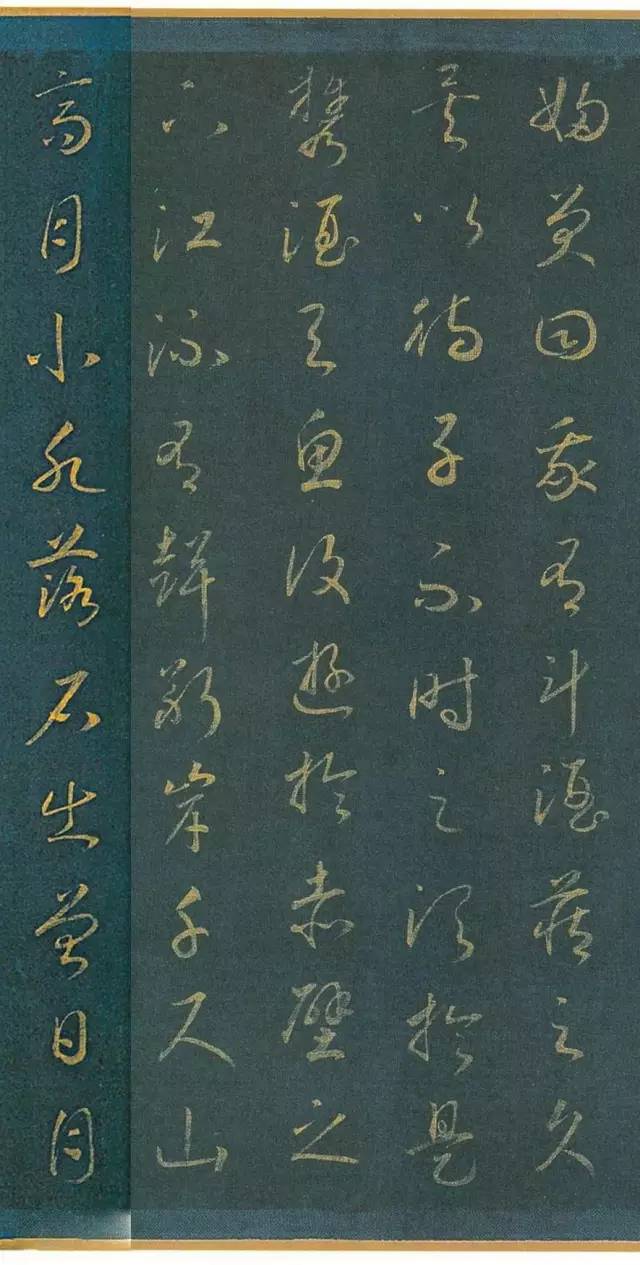 婦笑曰我有斗酒藏之久
矣以待子不時之須於是
攜酒與魚復遊於赤壁之
下江流有聲斷岸千尺山
高月小水落石出曾日月